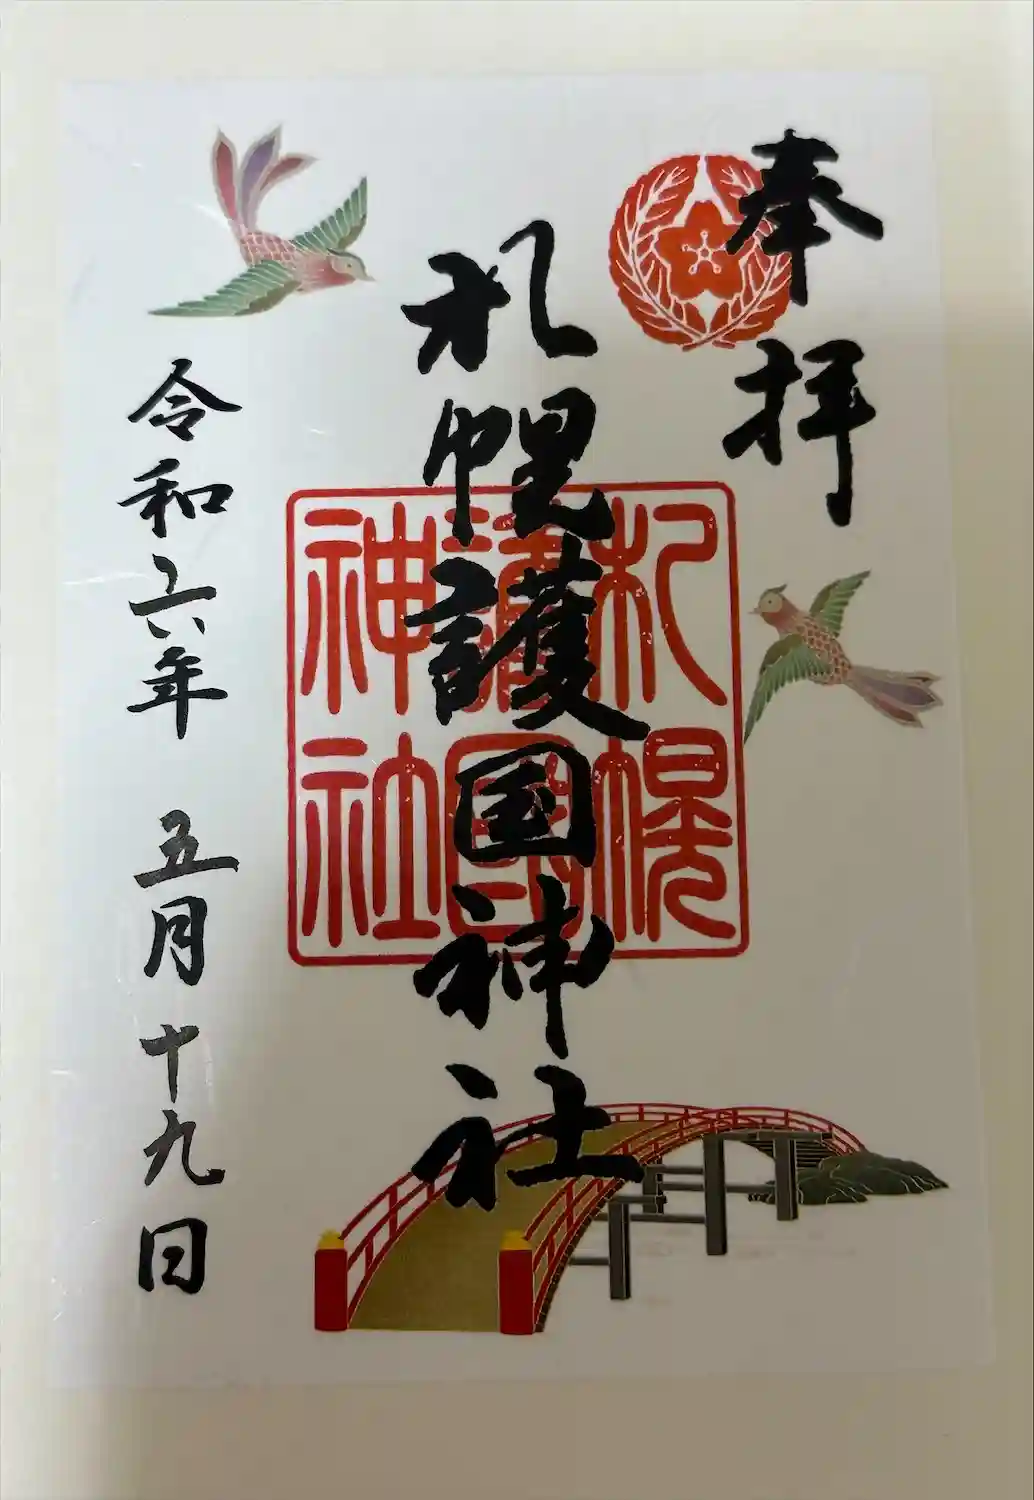 奉拝
札幌護国神社
札幌護國神社
令和六年 五月 十九日